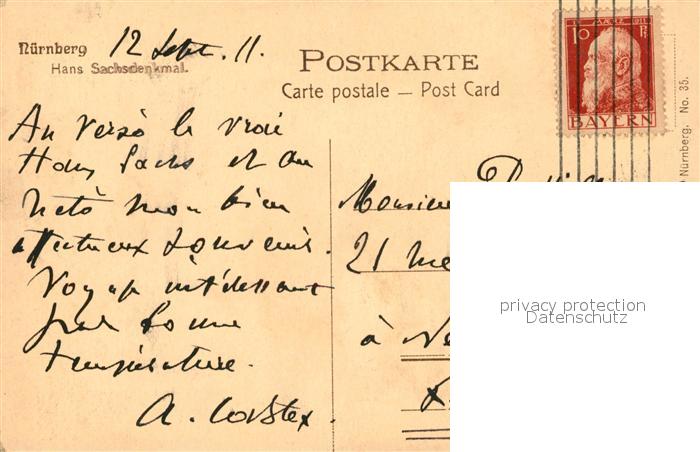 Nürnberg 12 Sept. 11.
Hans Sachsdenkmal.
POSTKARTE
Carte postale — Post Card
12. MÄRZ 1911
10 Pf
BAYERN
Nürnberg. No. 35.
Au verso le vrai
Hans Sachs et au
recto mon bien
affectueux souvenir.
Voyage intéressant
par bonne
température.
A.
Monsieur
21
à
privacy protection
Datenschutz